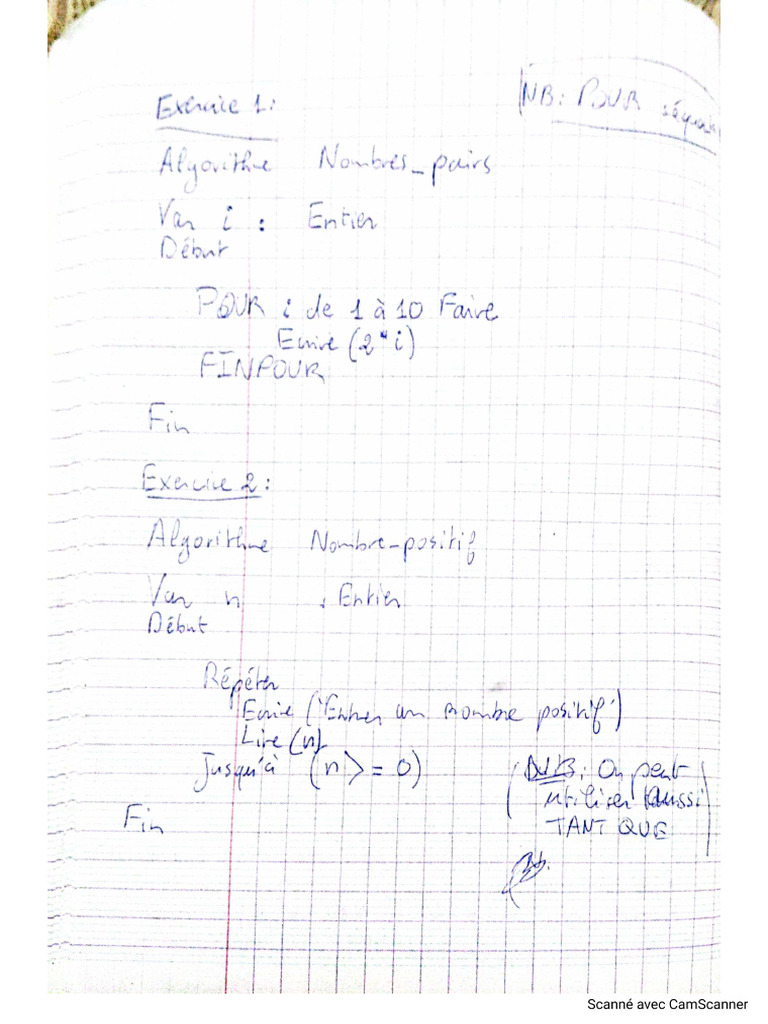 Exercice 1:
NB: POUR
Algorithme Nombres_pairs
Var i : Entier
Début
POUR i de 1 à 10 Faire
Ecrire (2*i)
FINPOUR
Fin
Exercice 2:
Algorithme Nombre_positif
Var n : Entier
Début
Répéter
Ecrire ("Entrer un nombre positif")
Lire (n)
Jusqu'à (n >= 0)
(NB: On peut
utiliser aussi
TANT QUE
Fin
Scanné avec CamScanner